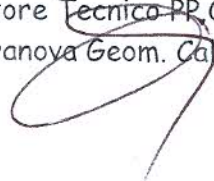 ore Tecnico PP.
anova Geom. Ca